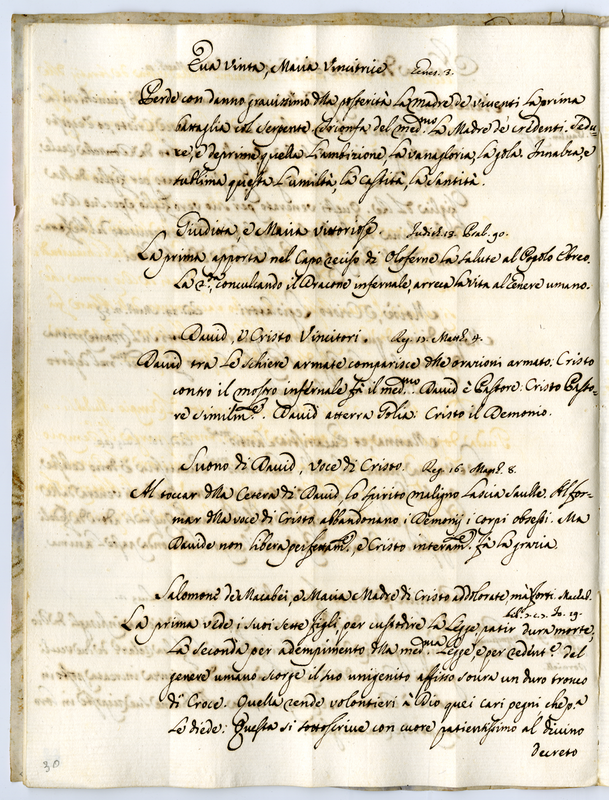 Eva Vinta, Maria Vincitrice Genes. 3.
Perde con danno gravissimo della posterità La madre de viventi La prima
battaglia col Serpente: trionfa del med.mo La Madre de credenti. Sedu-
ce, e deprime quella L'ambizione, La vanagloria, La gola. Innalza, e
sublima questa L'umiltà, La Castità, La Santità.
Giuditta, e Maria Vittoriose. Judith. 13. Psal. 90.
La prima apporta nel Capo reciso di Oloferne La salute al Popolo Ebreo.
La 2.da conculcando il Dracone infernale, arreca La vita al Genere umano.
David, e Cristo Vincitori. Reg. 17. Matth. 4.
David tra Le schiere armate comparisce delle orazioni armato: Cristo
contro il mostro infernale fà il med.mo. David è Pastore: Cristo Pasto-
re similm.te. David atterra Golia: Cristo il Demonio.
Suono di David, Voce di Cristo. Reg. 16. Matth. 8.
Al toccar della Cetera di David, Lo spirito maligno Lascia Saulle. Al for-
mar della voce di Cristo, abbandonano i Demonij i corpi obsessi. Ma
Davide non libera perfettam.te, e Cristo interam.te fà La grazia.
Salomone de Macabei, e Maria Madre di Cristo addolorate mà forti. Machab.
Lib. 2. c. 7. Jo. 19.
La prima vede i suoi sette figli per custodire La Legge patir dura morte,
La seconda per adempimento della med.ma Legge, e per redent.e del
genere umano scorge il suo unigenito affisso sovra un duro tronco
di Croce. Quella rende volontieri à Dio quei cari pegni che p.a
Le diede: Questa si sottoscrive con cuore patientissimo al divino
decreto
30